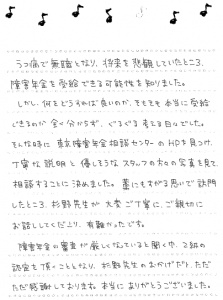 うつ病で無職となり、将来を悲観していたところ、
障害年金を受給できる可能性を知りました。
しかし、何をどうすれば良いのか、そもそも本当に受給
できるのか全く分からず、ぐるぐる考える日々でした。
そんな時に東京障害年金相談センターのHPを見つけ、
丁寧な説明と優しそうなスタッフの方々の写真を見て
相談することに決めました。藁にもすがる思いで訪問
したところ、杉野先生が大変ご丁寧に、ご親切に
お話ししてくださり、有難かったです。
障害年金の審査が厳しくなっていると聞く中、2級の
認定を頂くことになり、杉野先生のおかげだと、ただ
ただ感謝しております。本当にありがとうございました。